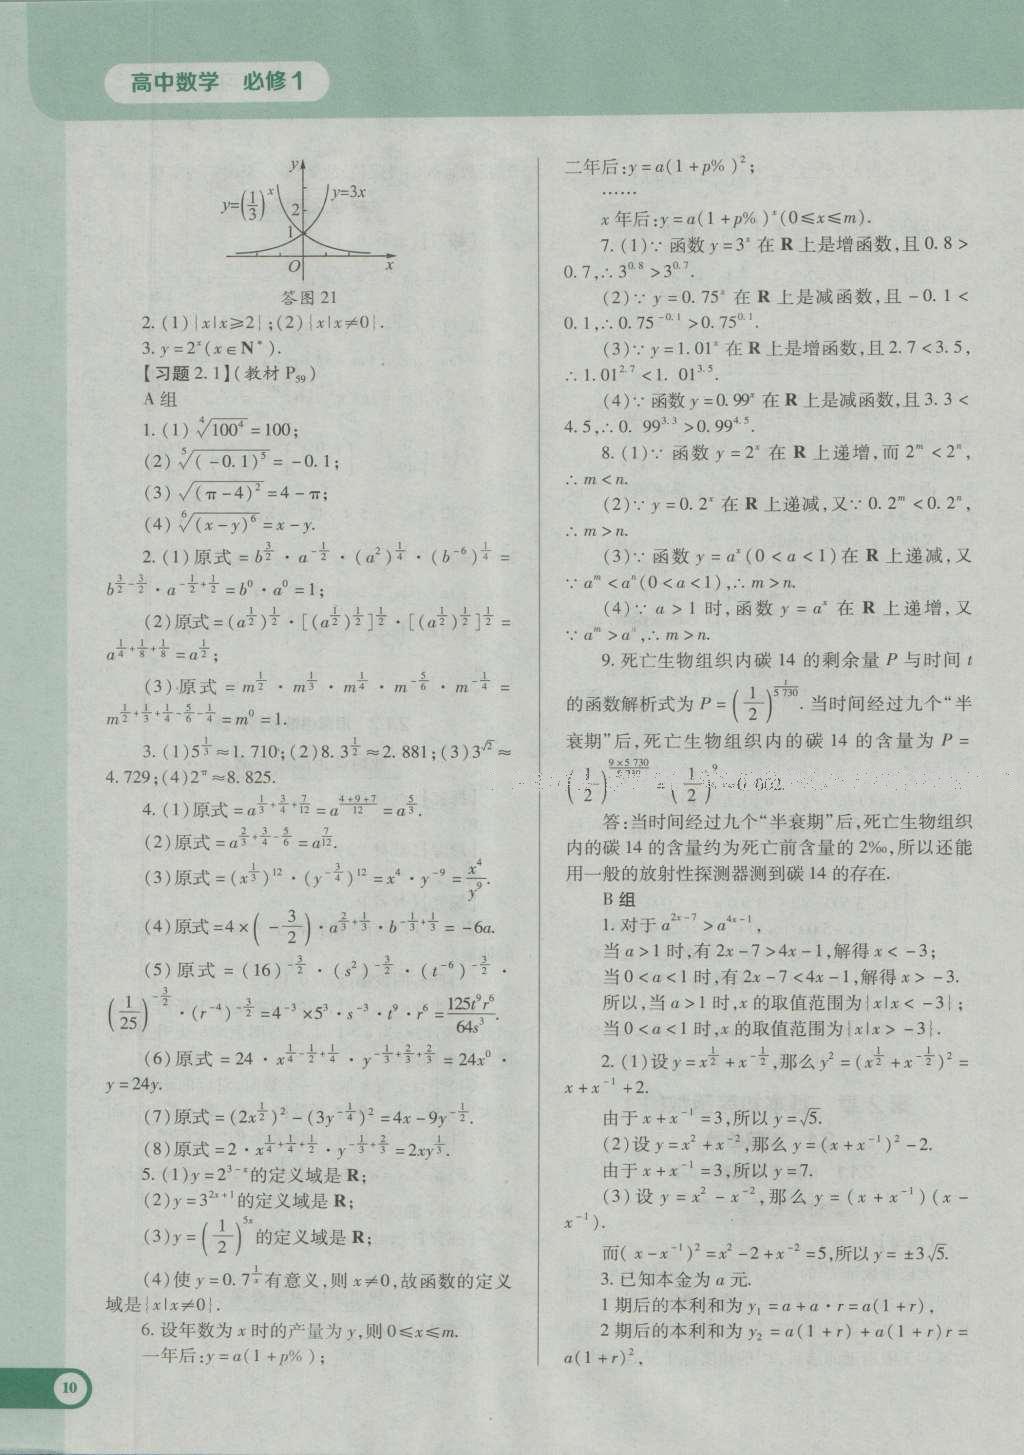 高中数学 必修1
y
y=(1/3)^x
y=3x
2
1
O
x
答图21
2. (1){x|x≥2};(2){x|x≠0}.
3. y=2^x(x∈N*).
【习题2.1】(教材P₅₉)
A组
1. (1) ⁴√(100⁴)=100;
(2) ⁵√((-0.1)⁵)=-0.1;
(3) √((π-4)²)=4-π;
(4) ⁶√((x-y)⁶)=x-y.
2. (1)原式=b^(3/2)·a^(-1/2)·(a²)^(1/4)·(b^(-6))^(1/4)=
b^(3/2-3/2)·a^(-1/2+1/2)=b⁰·a⁰=1;
(2)原式=(a^(1/2))^(1/2)·[(a^(1/2))^(1/2)]^(1/2)·[(a^(1/2))^(1/2)]^(1/2)=
a^(1/4+1/8+1/8)=a^(1/2);
(3)原式=m^(1/2)·m^(1/3)·m^(1/4)·m^(-5/6)·m^(-1/4)=
m^(1/2+1/3+1/4-5/6-1/4)=m⁰=1.
3. (1)5^(1/3)≈1.710;(2)8.3^(1/2)≈2.881;(3)3^(√2)≈
4.729;(4)2^π≈8.825.
4. (1)原式=a^(1/3+3/4+7/12)=a^((4+9+7)/12)=a^(5/3).
(2)原式=a^(2/3+3/4-5/6)=a^(7/12).
(3)原式=(x^(1/3))^12·(y^(-3/4))^12=x⁴·y^(-9)=x⁴/y⁹.
(4)原式=4×(-3/2)·a^(2/3+1/3)·b^(-1/3+1/3)=-6a.
(5)原式=(16)^(-3/2)·(s²)^(-3/2)·(t^(-6))^(-3/2)·
(1/25)^(-3/2)·(r^(-4))^(-3/2)=4^(-3)×5³·s^(-3)·t⁹·r⁶=125t⁹r⁶/64s³.
(6)原式=24·x^(1/4-1/2+1/4)·y^(-1/3+2/3+2/3)=24x⁰·
y=24y.
(7)原式=(2x^(1/2))²-(3y^(-1/4))²=4x-9y^(-1/2).
(8)原式=2·x^(1/4+1/4+1/2)·y^(-1/3+2/3)=2xy^(1/3).
5. (1)y=2^(3-x)的定义域是R;
(2)y=3^(2x+1)的定义域是R;
(3)y=(1/2)^(5x)的定义域是R;
(4)使y=0.7^(1/x)有意义,则x≠0,故函数的定义
域是{x|x≠0}.
6. 设年数为x时的产量为y,则0≤x≤m.
一年后:y=a(1+p%);
二年后:y=a(1+p%)²;
……
x年后:y=a(1+p%)^x(0≤x≤m).
7. (1)∵函数y=3^x在R上是增函数,且0.8>
0.7,∴3^0.8>3^0.7.
(2)∵y=0.75^x在R上是减函数,且-0.1<
0.1,∴0.75^(-0.1)>0.75^0.1.
(3)∵y=1.01^x在R上是增函数,且2.7<3.5,
∴1.01^2.7<1.01^3.5.
(4)∵函数y=0.99^x在R上是减函数,且3.3<
4.5,∴0.99^3.3>0.99^4.5.
8. (1)∵函数y=2^x在R上递增,而2^m<2^n,
∴m<n.
(2)∵y=0.2^x在R上递减,又∵0.2^m<0.2^n,
∴m>n.
(3)∵函数y=a^x(0<a<1)在R上递减,又
∵a^m<a^n(0<a<1),∴m>n.
(4)∵a>1时,函数y=a^x在R上递增,又
∵a^m>a^n,∴m>n.
9. 死亡生物组织内碳14的剩余量P与时间t
的函数解析式为P=(1/2)^(1/5 730).当时间经过九个“半
衰期”后,死亡生物组织内的碳14的含量为P=
(1/2)^(9×5 730/5 730)=(1/2)^9≈0.002.
答:当时间经过九个“半衰期”后,死亡生物组织
内的碳14的含量约为死亡前含量的2‰,所以还能
用一般的放射性探测器测到碳14的存在.
B组
1. 对于a^(2x-7)>a^(4x-1),
当a>1时,有2x-7>4x-1,解得x<-3;
当0<a<1时,有2x-7<4x-1,解得x>-3.
所以,当a>1时,x的取值范围为{x|x<-3};
当0<a<1时,x的取值范围为{x|x>-3}.
2. (1)设y=x^(1/2)+x^(-1/2),那么y²=(x^(1/2)+x^(-1/2))²=
x+x^(-1)+2.
由于x+x^(-1)=3,所以y=√5.
(2)设y=x²+x^(-2),那么y=(x+x^(-1))²-2.
由于x+x^(-1)=3,所以y=7.
(3)设y=x²-x^(-2),那么y=(x+x^(-1))(x-
x^(-1)).
而(x-x^(-1))²=x²-2+x^(-2)=5,所以y=±3√5.
3. 已知本金为a元.
1期后的本利和为y₁=a+a·r=a(1+r),
2期后的本利和为y₂=a(1+r)+a(1+r)r=
a(1+r)²,
10